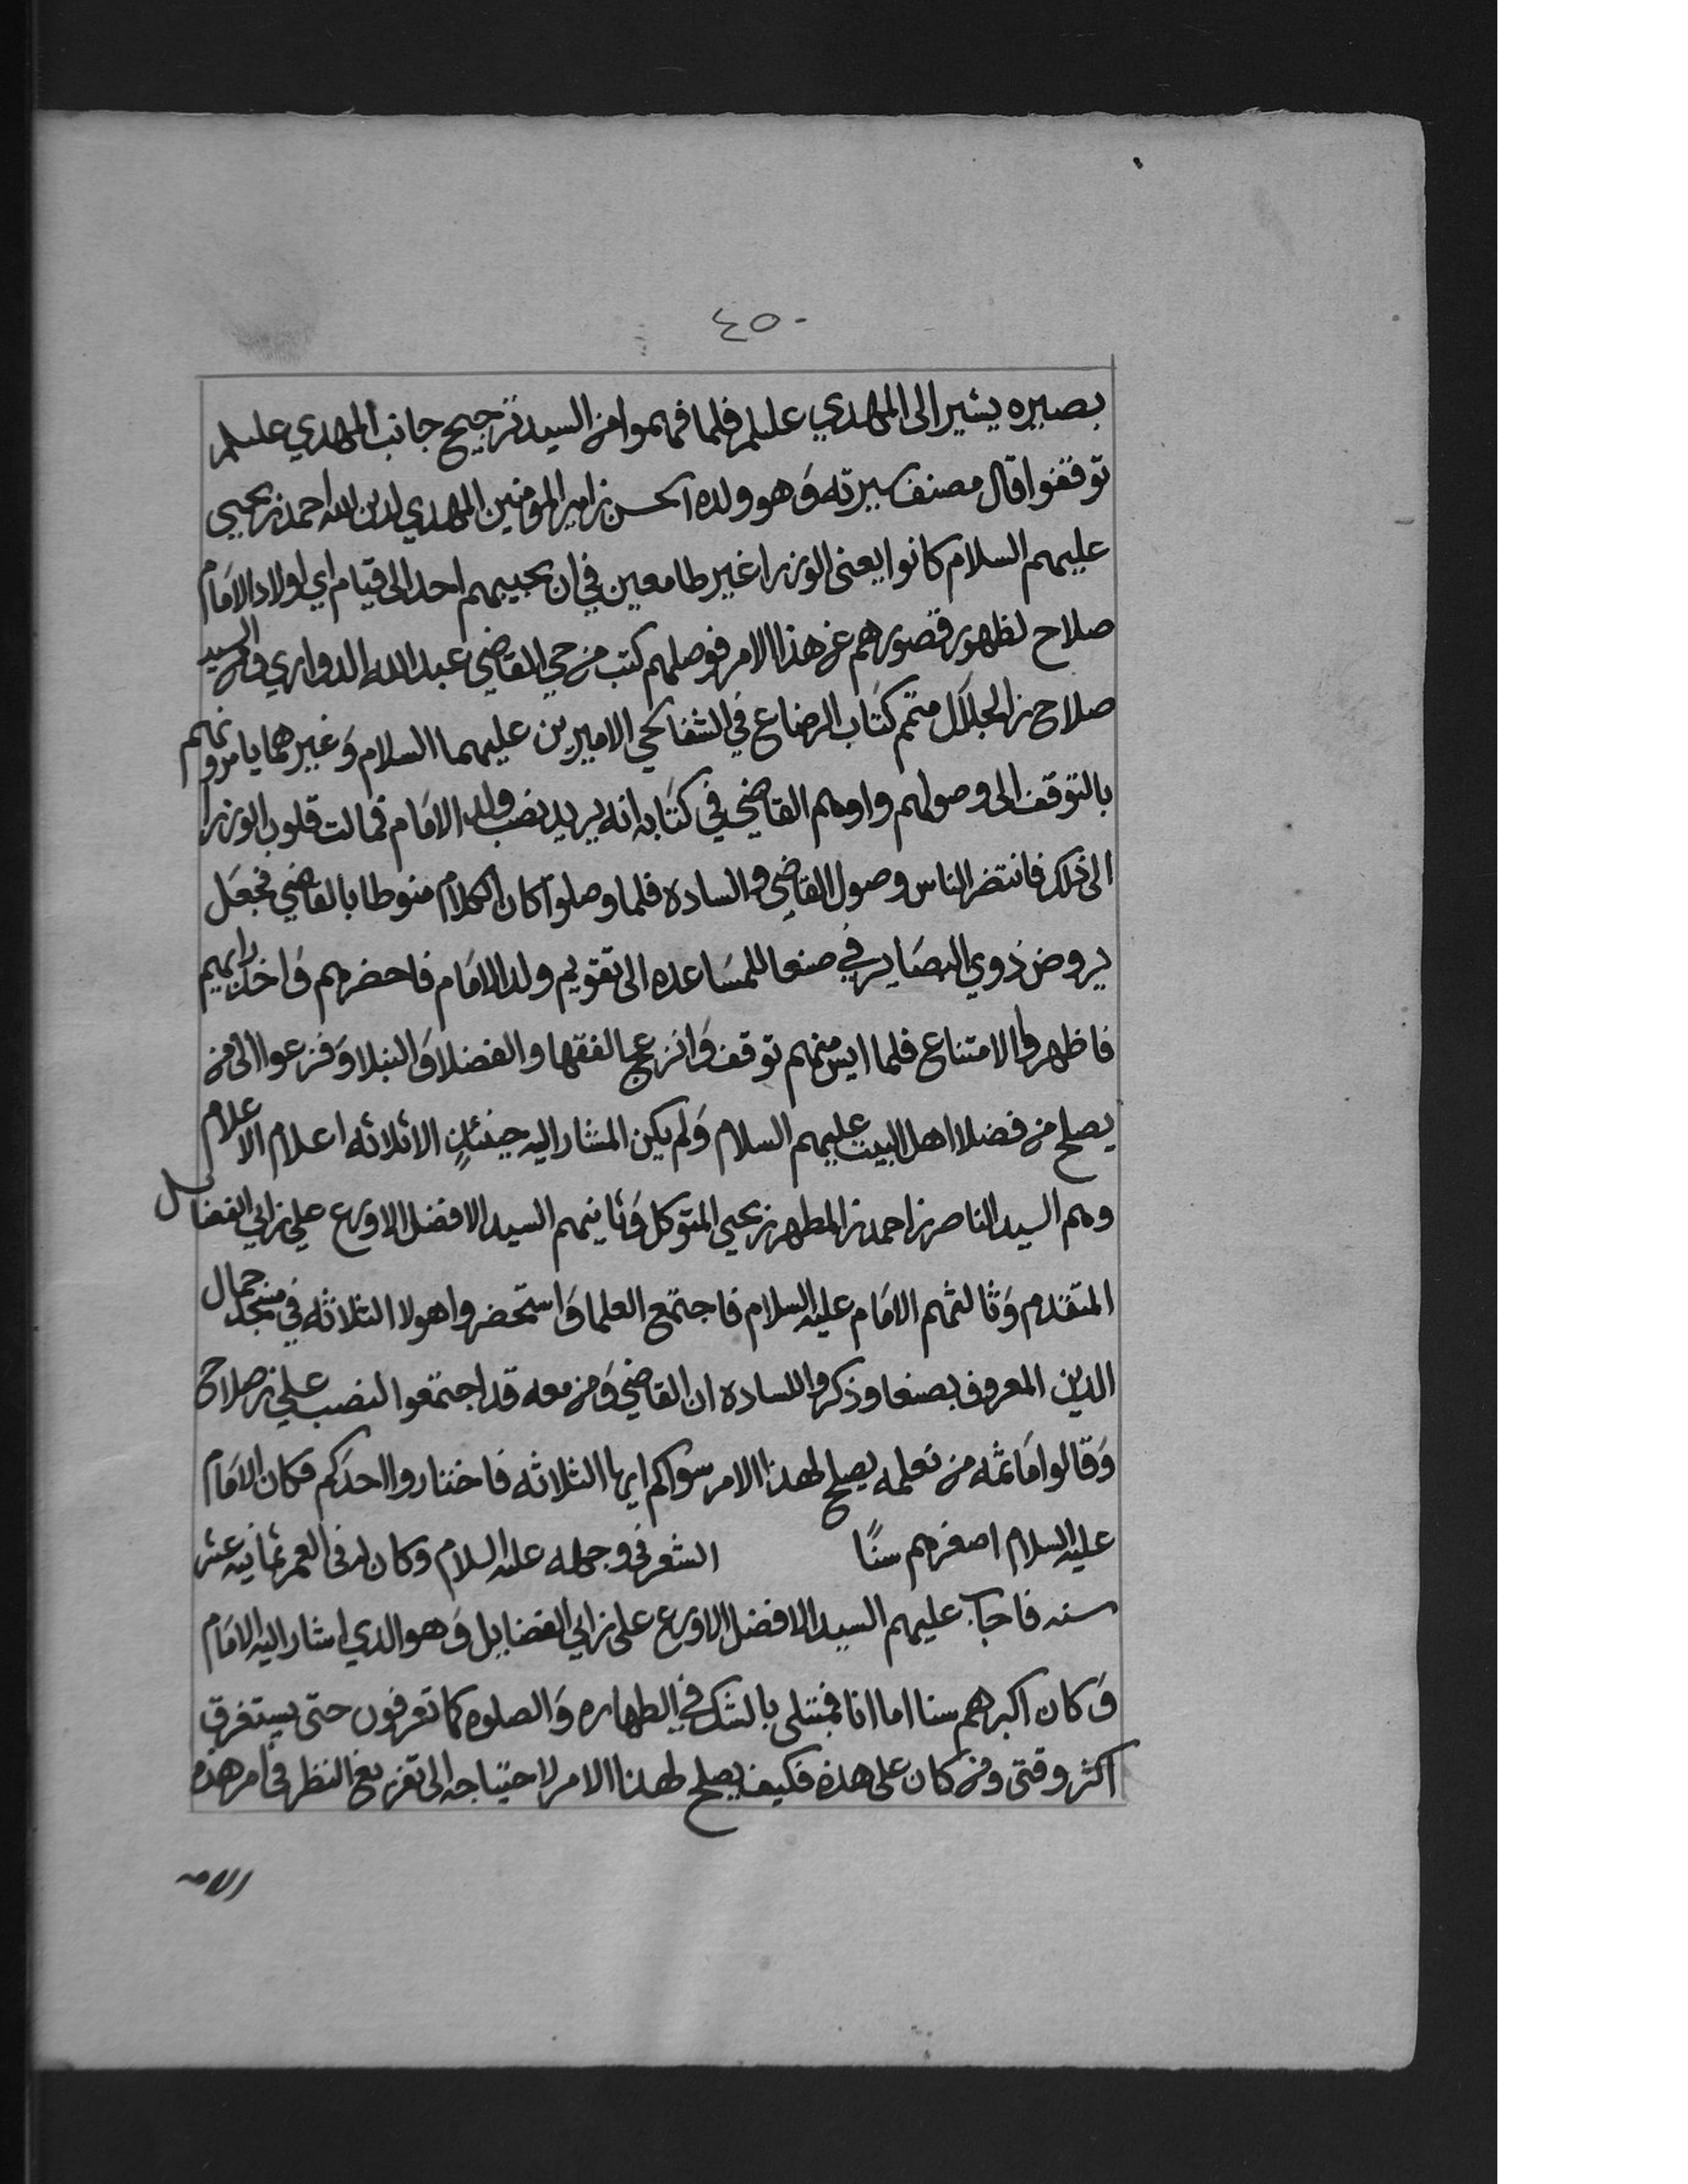 ٤٥٠
بصيره يشير الى المهدي عليلم فلما فهموا من السيد ترجيح جانب المهدي عليلم
توقفوا قال مصنف سيرته وهو ولده الحسن بن امير المومنين المهدي لدين الله احمد بن يحيى
عليهم السلام كانوا يعنى الوزرا غير طامعين في ان يجيبهم احد الى قيام اي اولاد الامام
صلاح لظهور قصورهم عن هذا الامر فوصلهم كتب من حي القاضي عبد الله الدواري ومن السيد
صلاح بن الجلال متمم كتاب الرضاع في الشفا لحي الاميرين عليهما السلام وغيرهما يامرونهم
بالتوقف الى وصولهم واوهم القاضي في كتابه انه يريد نصب ولد الامام فمالت قلوب الوزرا
الى ذلك فانتضر الناس وصول القاضي والساده فلما وصلوا كان الكلام منوطا بالقاضي فجعل
يروض ذوي البصاير في صنعا للمساعده الى تقويم ولد الامام فاحضرهم واخذ رايهم
فاظهروا الامتناع فلما ايس منهم توقف وانزعج الفقها والفضلا والنبلا وفزعوا الى من
يصلح من فضلا اهل البيت عليهم السلام ولم يكن المشار اليه حينئذٍ الا ثلاثه اعلام الاعلام
وهم السيد الناصر بن احمد بن المطهر بن يحيى المتوكل وثانيهم السيد الافضل الاورع علي بن ابي الفضايل
المتقدم وثالثهم الامام عليه السلام فاجتمع العلما واستحضروا هولا الثلاثه في مسجد جمال
الدين المعروف بصنعا وذكروا للساده ان القاضي ومن معه قد اجتمعوا لنصب علي بن صلاح
وقالوا ما ثمه من نعلمه يصلح لهذا الامر سواكم ايها الثلاثه فاختاروا احدكم فكان الامام
عليه السلام اصغرهم سنًا الشعر في وجهه عليه السلام وكان له في العمر ثمانيه عشر
سنه فاجاب عليهم السيد الافضل الاورع على بن ابي الفضايل وهو الذي اشار اليه الامام
وكان اكبرهم سنا اما انا فمبتلى بالشك في الطهاره والصلوه كما تعرفون حتى يستغرق
اكثر وقتى ومن كان على هذه فكيف يصلح لهذا الامر لاحتياجه الى تفريغ النظر في امر هذه
الامه